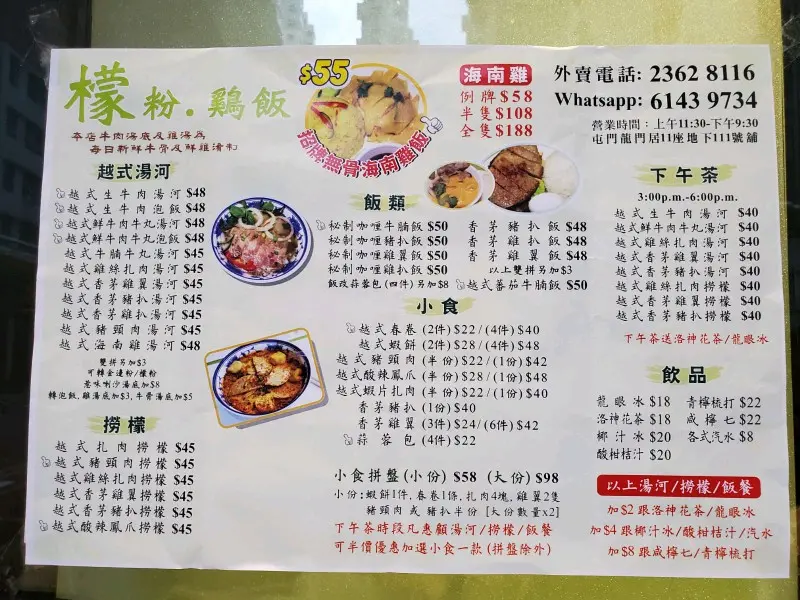 檬粉.鷄飯
本店牛肉湯底及雞湯為
每日新鮮牛骨及鮮雞清制
$55
招牌無骨海南雞飯
海南雞
例牌$58
半隻$108
全隻$188
外賣電話: 2362 8116
Whatsapp: 6143 9734
營業時間：上午11:30-下午9:30
屯門龍門居11座地下111號舖
越式湯河
越式生牛肉湯河 $48
越式生牛肉泡飯 $48
越式鮮牛肉牛丸湯河 $48
越式鮮牛肉牛丸泡飯 $48
越式牛腩牛丸湯河 $45
越式雞絲扎肉湯河 $45
越式香茅雞翼湯河 $45
越式香茅豬扒湯河 $45
越式香茅雞扒湯河 $45
越式豬頸肉湯河 $45
越式海南雞湯河 $48
雙拼另加$3
可轉金邊粉/檬粉
惹味喇沙湯底加$8
轉泡飯,雞湯底加$3,牛骨湯底加$5
撈檬
越式扎肉撈檬 $45
越式豬頸肉撈檬 $45
越式雞絲扎肉撈檬 $45
越式香茅雞翼撈檬 $45
越式香茅豬扒撈檬 $45
越式酸辣鳳爪撈檬 $45
飯類
秘制咖喱牛腩飯 $50
秘制咖喱豬扒飯 $50
秘制咖喱雞翼飯 $50
秘制咖喱雞扒飯 $50
飯改蒜蓉包(四件)另加$8
香茅豬扒飯 $48
香茅雞扒飯 $48
香茅雞翼飯 $48
以上雙拼另加$3
越式蕃茄牛腩飯 $50
小食
越式春卷 (2件) $22/(4件) $40
越式蝦餅 (2件) $28/(4件) $48
越式豬頸肉 (半份) $22/(1份) $42
越式酸辣鳳爪 (半份) $28/(1份) $48
越式蝦片扎肉 (半份) $22/(1份) $40
香茅豬扒 (1份) $40
香茅雞翼 (3件) $24/(6件) $42
蒜蓉包 (4件) $22
小食拼盤(小份) $58 (大份) $98
小份:蝦餅1件,春卷1條,扎肉4塊,雞翼2隻
豬頸肉或豬扒半份 [大份數量x2]
下午茶時段凡惠顧湯河/撈檬/飯餐
可半價優惠加選小食一款 (拼盤除外)
下午茶
3:00p.m.-6:00p.m.
越式生牛肉湯河 $40
越式鮮牛肉牛丸湯河 $40
越式雞絲扎肉湯河 $40
越式香茅雞翼湯河 $40
越式香茅豬扒湯河 $40
越式雞絲扎肉撈檬 $40
越式香茅雞翼撈檬 $40
越式香茅豬扒撈檬 $40
下午茶送洛神花茶/龍眼冰
飲品
龍眼冰 $18
洛神花茶 $18
椰汁冰 $20
酸柑桔汁 $20
青檸梳打 $22
咸檸七 $22
各式汽水 $8
以上湯河/撈檬/飯餐
加$2跟洛神花茶/龍眼冰
加$4跟椰汁冰/酸柑桔汁/汽水
加$8跟咸檸七/青檸梳打